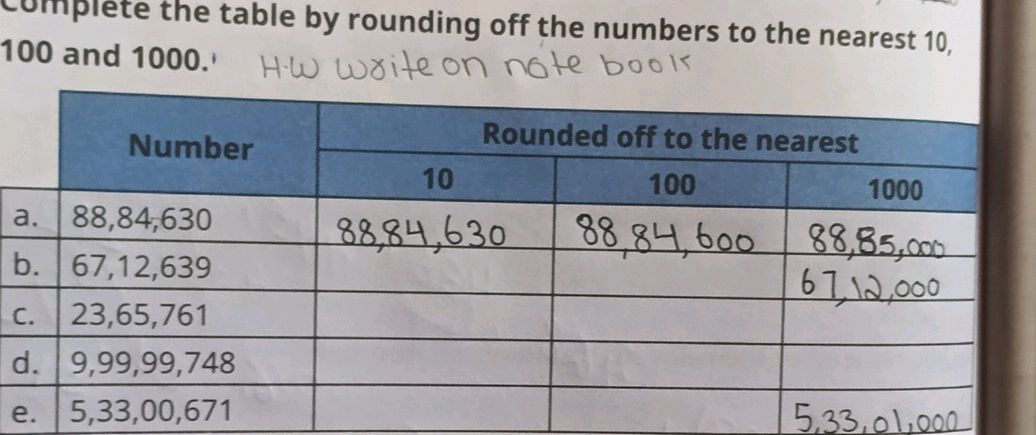 Complete the table by rounding off the numbers to the nearest 10,
100 and 1000. H.W write on note book
Number Rounded off to the nearest
10 100 1000
a. 88,84,630 88,84,630 88,84,600 88,85,000
b. 67,12,639 67,12,000
c. 23,65,761
d. 9,99,99,748
e. 5,33,00,671 5,33,01,000